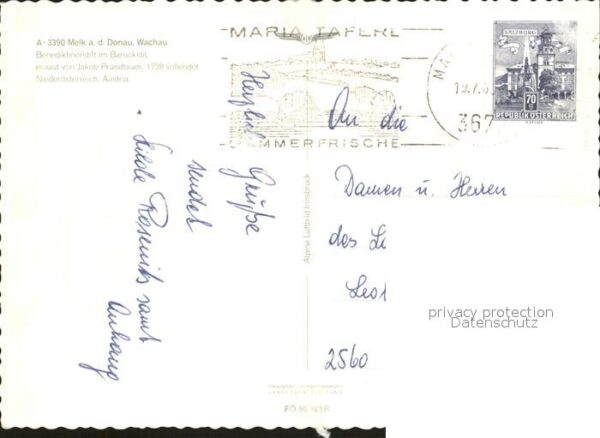 A - 3390 Melk a. d. Donau, Wachau
Benediktinerstift im Barockstil,
erbaut von Jakob Prandtauer, 1739 vollendet
Niederösterreich, Austria
MARIA TAFERL
SOMMERFRISCHE
367
SALZBURG
70
REPUBLIK ÖSTERREICH
Herzliche
Grüße
sendet
samt
Anhang
An die
Damen u. Herren
des
2560
Alpine Luftbild Innsbruck
privacy protection
Datenschutz